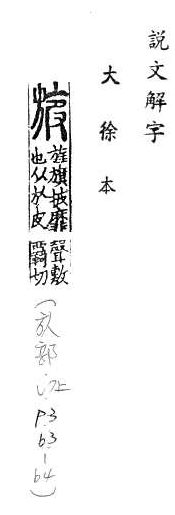 說文解字
大徐本
旇
旌旗披靡聲敷
也从㫃皮羈切
(㫃部 七上 P.363-64)